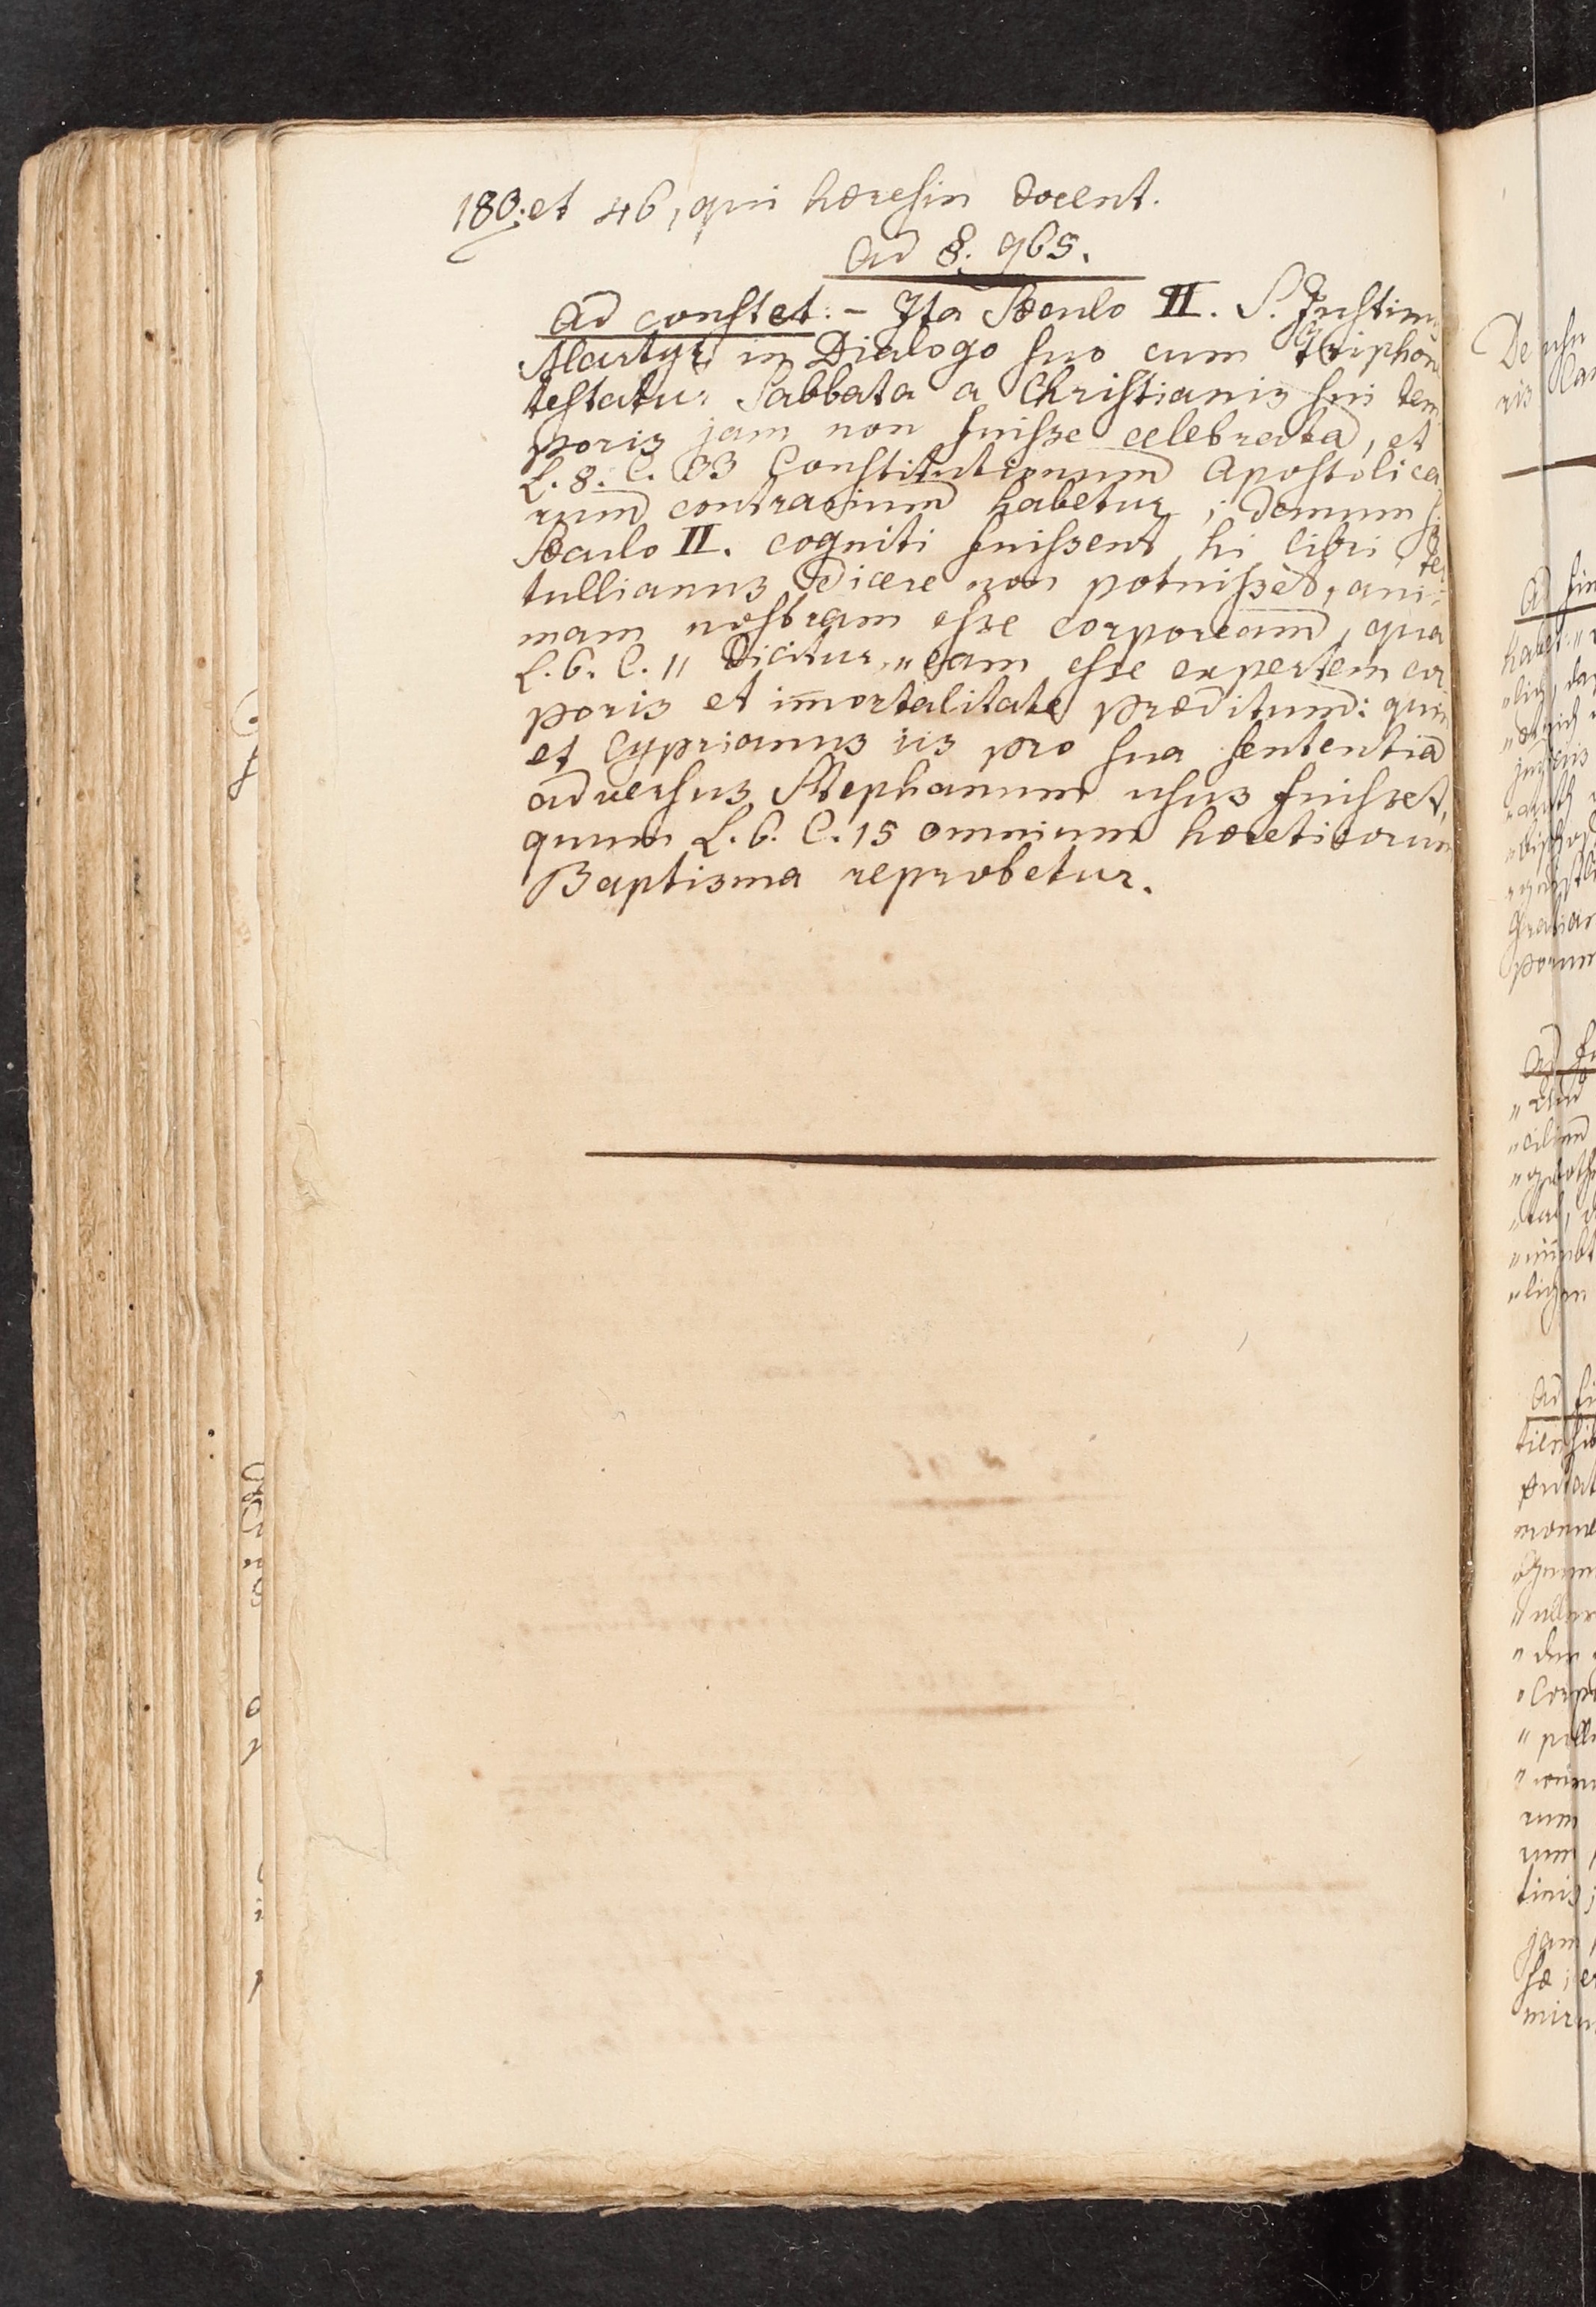 180. et 46, qui hæresin docent.
Ad §. 965.
Ad constet: - Ita Sæculo II. S. Justin
Martyr in Dialogo suo cum Triphon
testatur Sabbata a Christianis sui tem
poris jam non fuisse celebrata, et
L. 8. C. 33 Constitutionum Apostolica
rum contrarium habetur; demum si
Sæculo II. cogniti fuissent hi libri, Ter
tullianus dicere non potuisset, ani:
mam nostram esse corpoream, qua
L. 6. C. 11 dicitur „eam esse expertem cor
poris et im̅ortalitate præditum: quin
et Cyprianus iis pro sua sententia
adversus Stephanum usus fuisset,
quum L. 6. C. 15 omnium hæreticorum
Baptisma reprobetur.